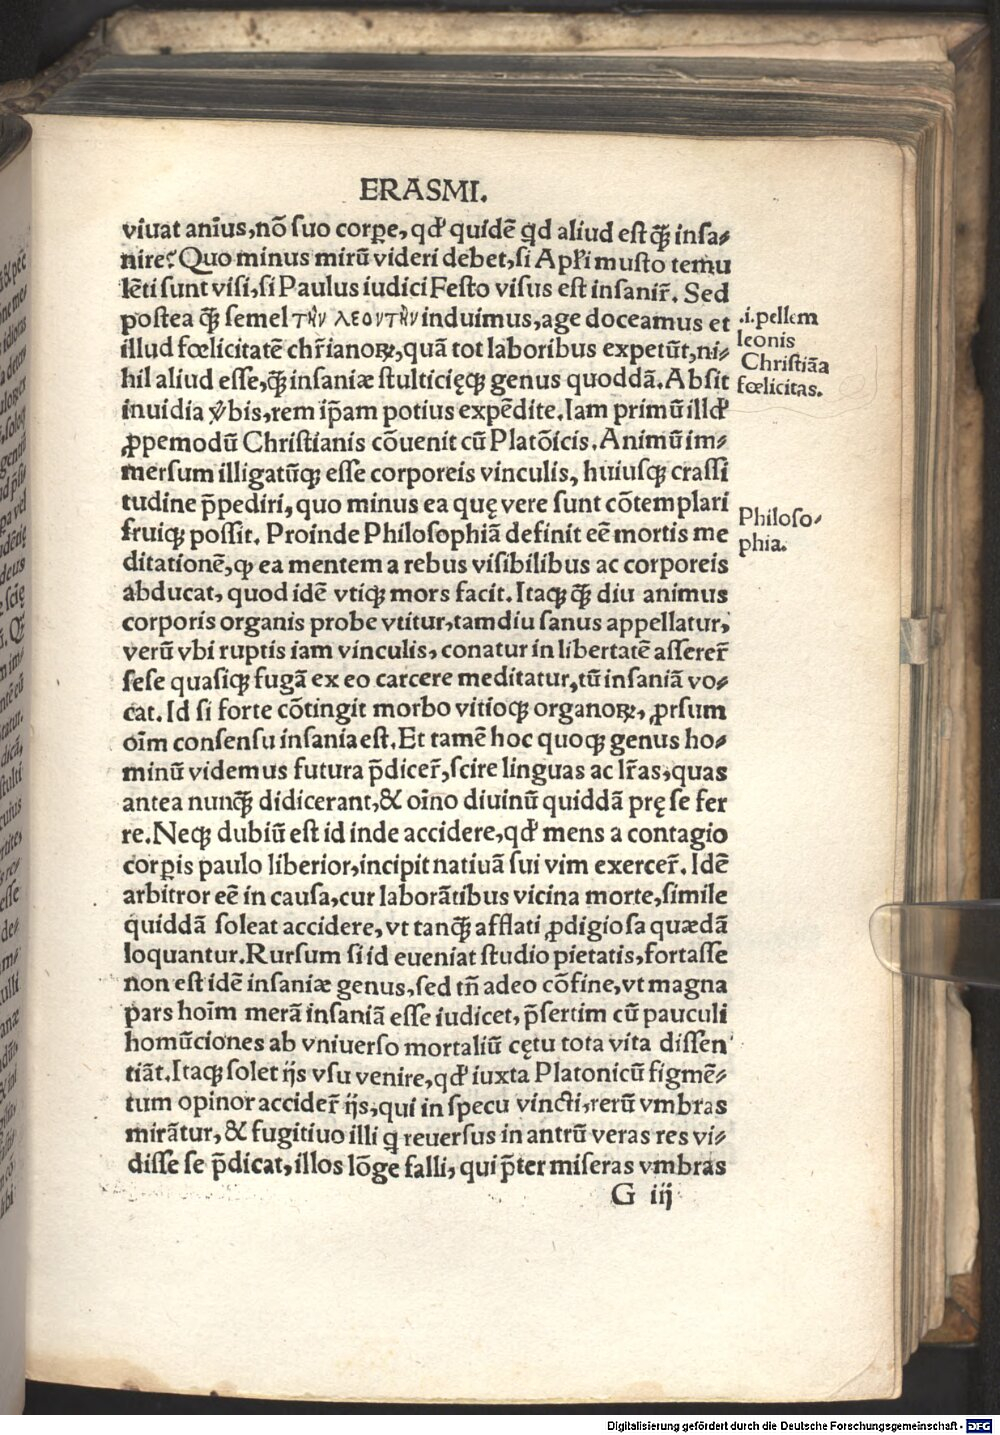 ERASMI.
viuat anĩus, nõ suo corꝑe, qđ quidẽ qd aliud est q̃ꝫ insa⸗
nire? Quo minus mirũ videri debet, si Apľi musto temu
lẽti sunt visi, si Paulus iudici Festo visus est insanir̃. Sed
postea q̃ꝫ semel τὴν λεοντὴν induimus, age doceamus et
illud fœlicitatẽ chr̃ianoꝝ, quã tot laboribus expetũt, ni⸗
hil aliud esse, q̃ꝫ insaniæ stulticięqꝫ genus quoddã. Absit
inuidia v̾bis, rem ip̃am potius expẽdite. Iam primũ illđ
ꝓpemodũ Christianis cõuenit cũ Platõicis. Animũ im⸗
mersum illigatũqꝫ esse corporeis vinculis, huiusqꝫ crassi
tudine p̃pediri, quo minus ea quę vere sunt cõtemplari
fruiqꝫ possit. Proinde Philosophiã definit eẽ mortis me
ditationẽ, ꝙ ea mentem a rebus visibilibus ac corporeis
abducat, quod idẽ vtiqꝫ mors facit. Itaqꝫ q̃ꝫ diu animus
corporis organis probe vtitur, tamdiu sanus appellatur,
verũ vbi ruptis iam vinculis, conatur in libertatẽ asserer̃
sese quasiqꝫ fugã ex eo carcere meditatur, tũ insaniã vo⸗
cãt. Id si forte cõtingit morbo vitioqꝫ organoꝝ, ꝓrsum
oĩm consensu insania est. Et tamẽ hoc quoqꝫ genus ho⸗
minũ videmus futura p̃dicer̃, scire linguas ac lr̃as, quas
antea nunq̃ꝫ didicerant, & oĩno diuinũ quiddã prę se fer
re. Neqꝫ dubiũ est id inde accidere, qđ mens a contagio
corꝑis paulo liberior, incipit natiuã sui vim exercer̃. Idẽ
arbitror eẽ in causa, cur laborãtibus vicina morte, simile
quiddã soleat accidere, vt tanq̃ꝫ afflati ꝓdigiosa quædã
loquantur. Rursum si id eueniat studio pietatis, fortasse
non est idẽ insaniæ genus, sed tñ adeo cõfine, vt magna
pars hoĩm merã insaniã esse iudicet, p̃sertim cũ pauculi
homũciones ab vniuerso mortaliũ cętu tota vita dissen
tiãt. Itaqꝫ solet ijs vsu venire, qđ iuxta Platonicũ figmẽ⸗
tum opinor accider̃ ijs, qui in specu vincti, rerũ vmbras
mirãtur, & fugitiuo illi q reuersus in antrũ veras res vi⸗
disse se p̃dicat, illos lõge falli, qui p̃ter miseras vmbras
G iij
.i. pellem
leonis
Christiãa
fœlicitas.
Philoso⸗
phia.
Digitalisierung gefördert durch die Deutsche Forschungsgemeinschaft - DFG